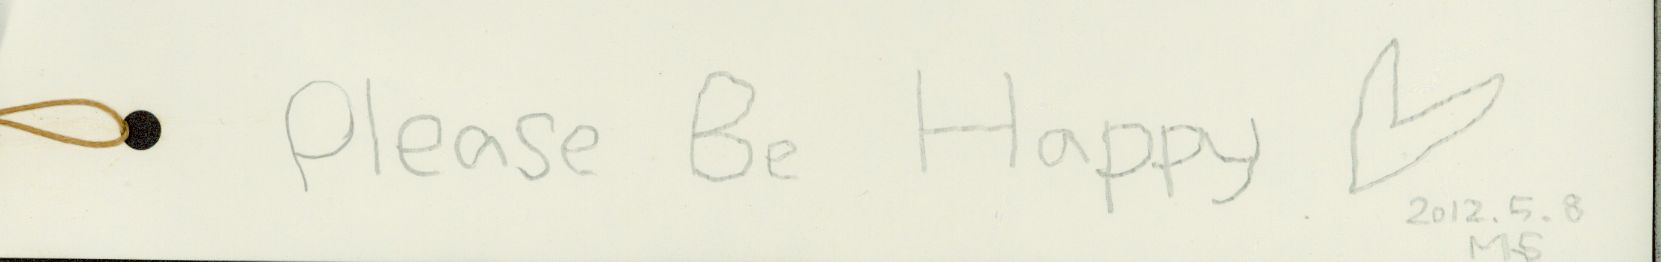 Please Be Happy
2012.5.8
MS